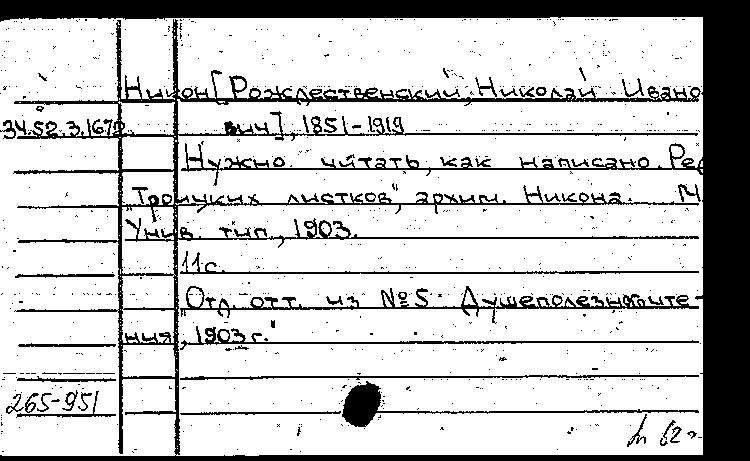 Никон [Рождественский, Николай Ивано
34.52.3.1672. вич], 1851-1919
Нужно читать, как написано. Ред
"Троицких листков", архим. Никона. М
Унив. тип., 1903.
11с.
"Отд. отт. из №5 Душеполезн. чте-
ния, 1903 г."
265-951